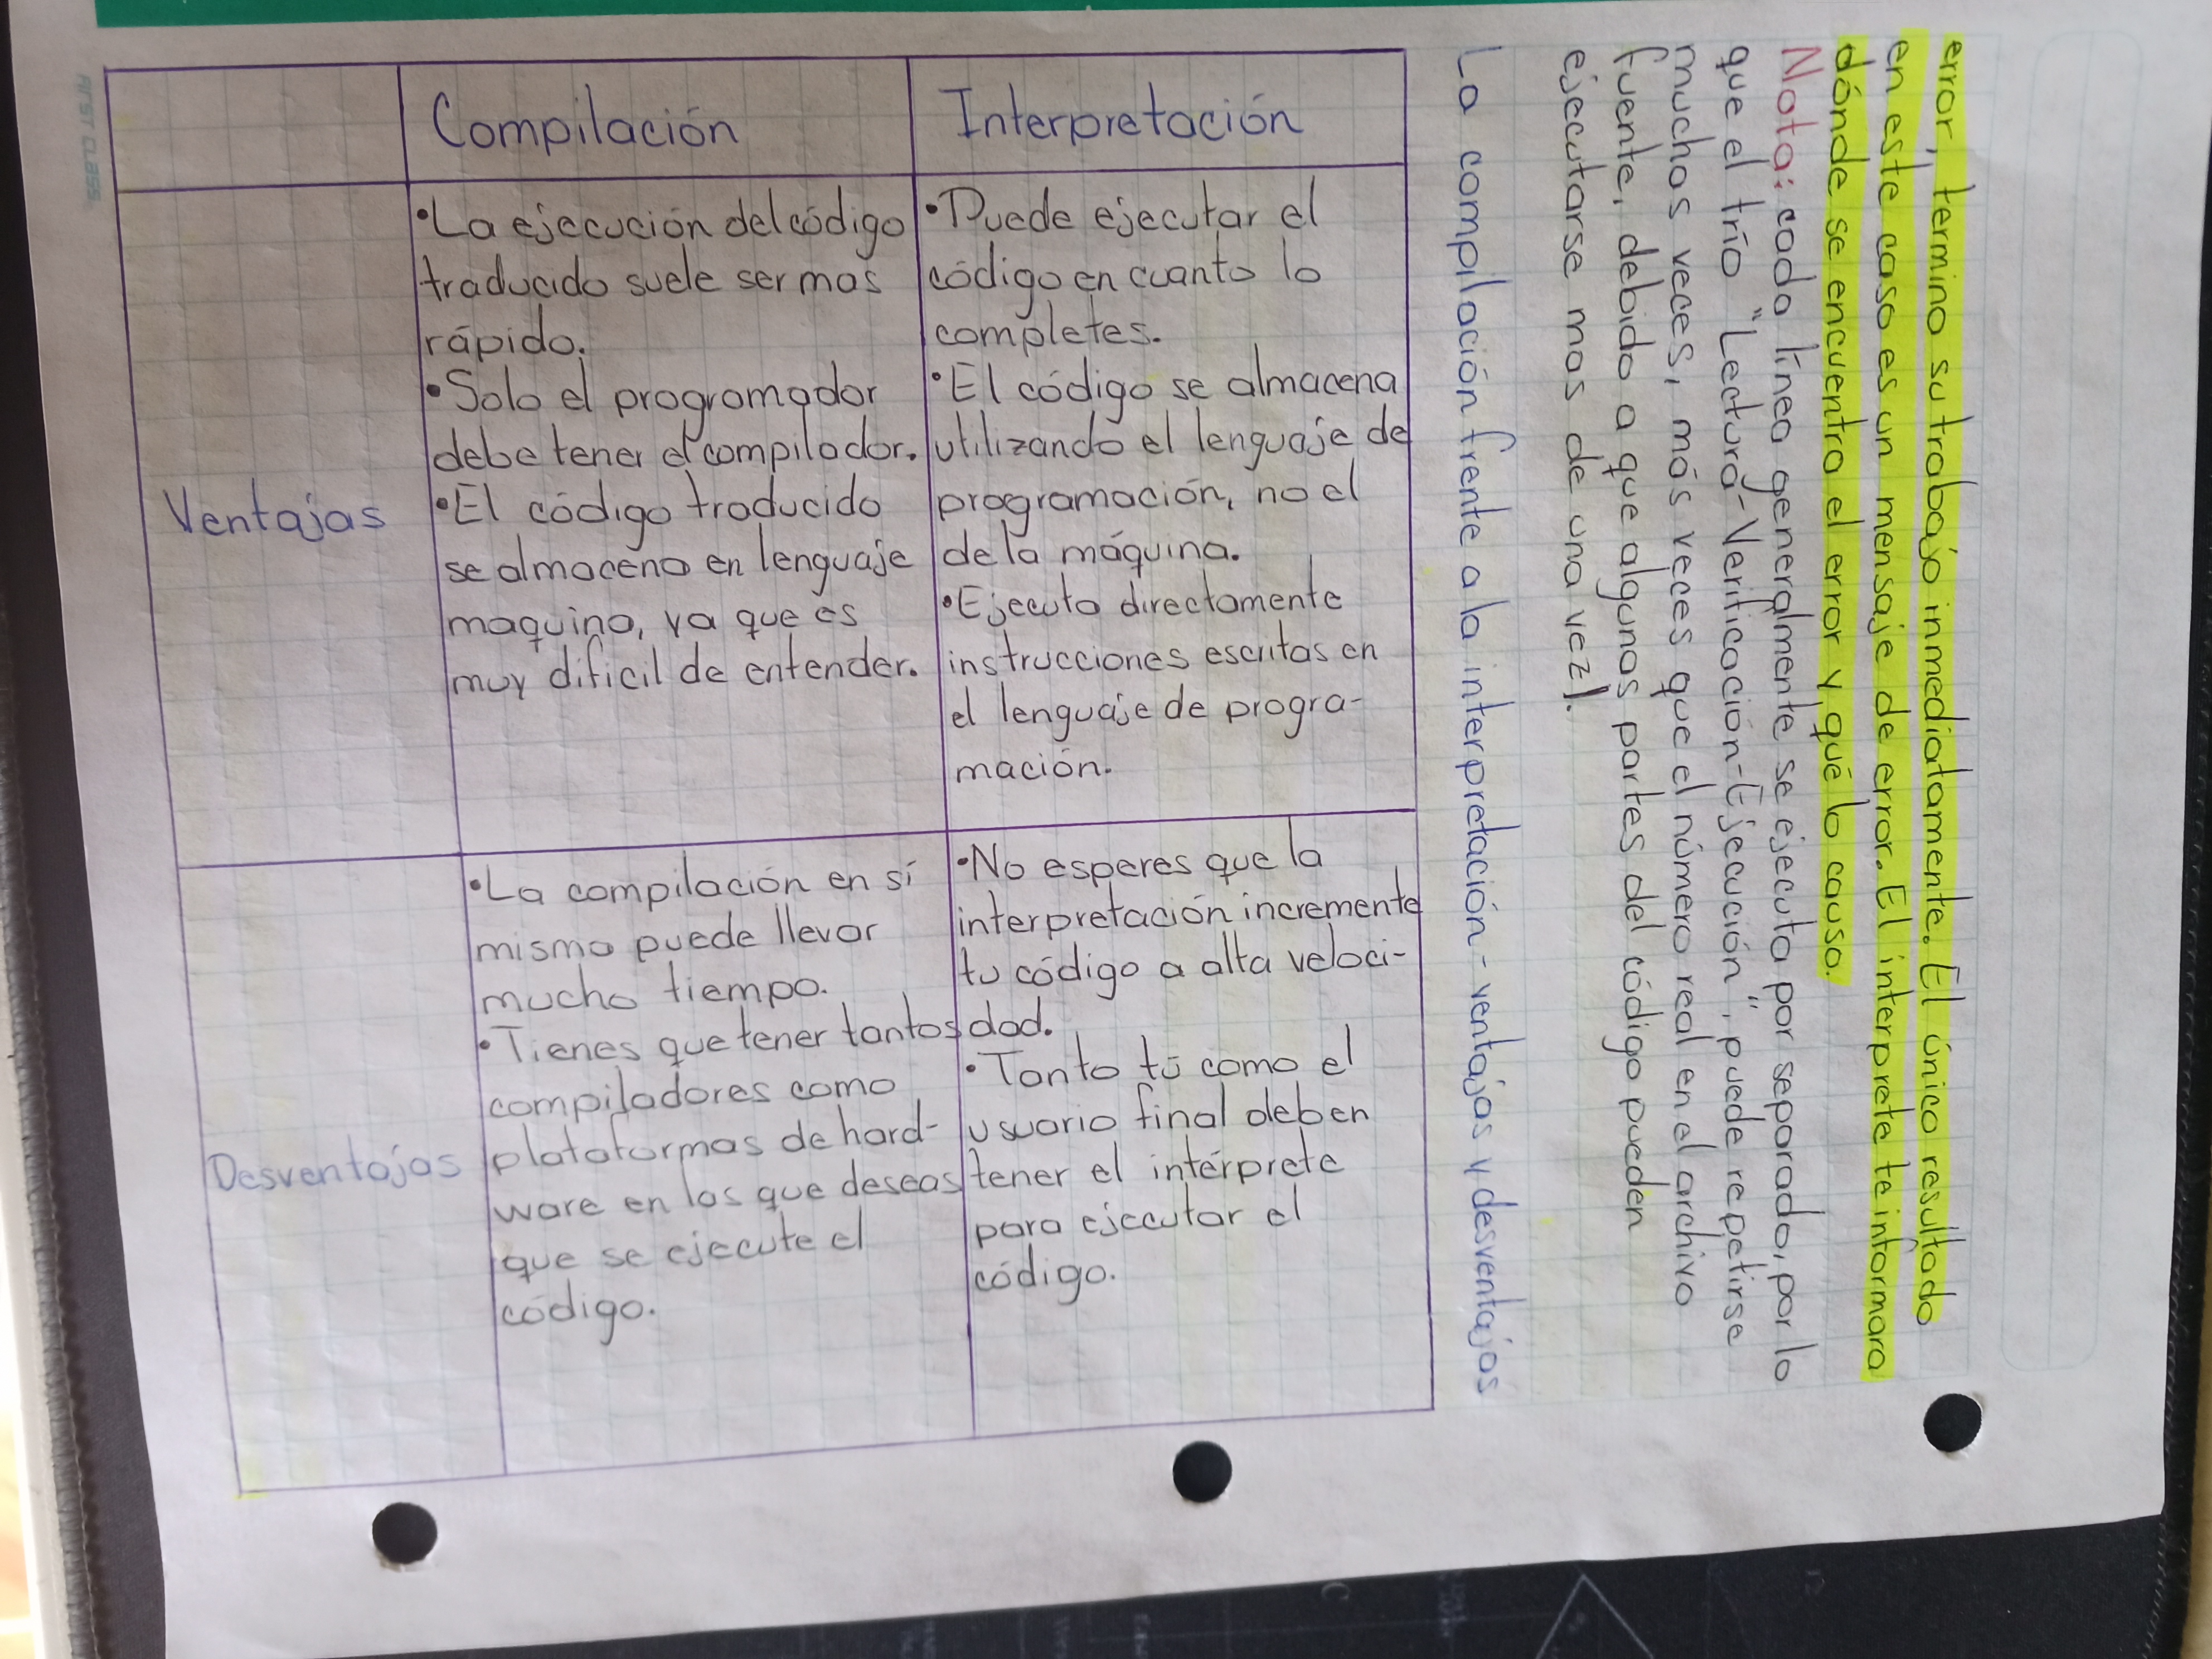 error, termino su trabajo inmediatamente. El único resultado
en este caso es un mensaje de error. El interprete te informara
dónde se encuentra el error y qué lo causo.
Nota: cada línea generalmente se ejecuta por separado, por lo
que el trío "Lectura-Verificación-Ejecución", puede repetirse
muchas veces, más veces que el número real en el archivo
fuente, debido a que algunas partes del código pueden
ejecutarse mas de una vez).
La compilación frente a la interpretación - ventajas y desventajas
Compilación
Interpretación
Ventajas
•La ejecución del código
traducido suele ser mas
rápido.
•Solo el programador
debe tener el compilador.
•El código traducido
se almacena en lenguaje
maquina, ya que es
muy dificil de entender.
•Puede ejecutar el
código en cuanto lo
completes.
•El código se almacena
utilizando el lenguaje de
programación, no el
de la máquina.
•Ejecuta directamente
instrucciones escritas en
el lenguaje de progra-
mación.
Desventajas
•La compilación en sí
misma puede llevar
mucho tiempo.
•Tienes que tener tantos
compiladores como
plataformas de hard-
ware en las que deseas
que se ejecute el
código.
•No esperes que la
interpretación incremente
tu código a alta veloci-
dad.
•Tanto tú como el
usuario final deben
tener el intérprete
para ejecutar el
código.